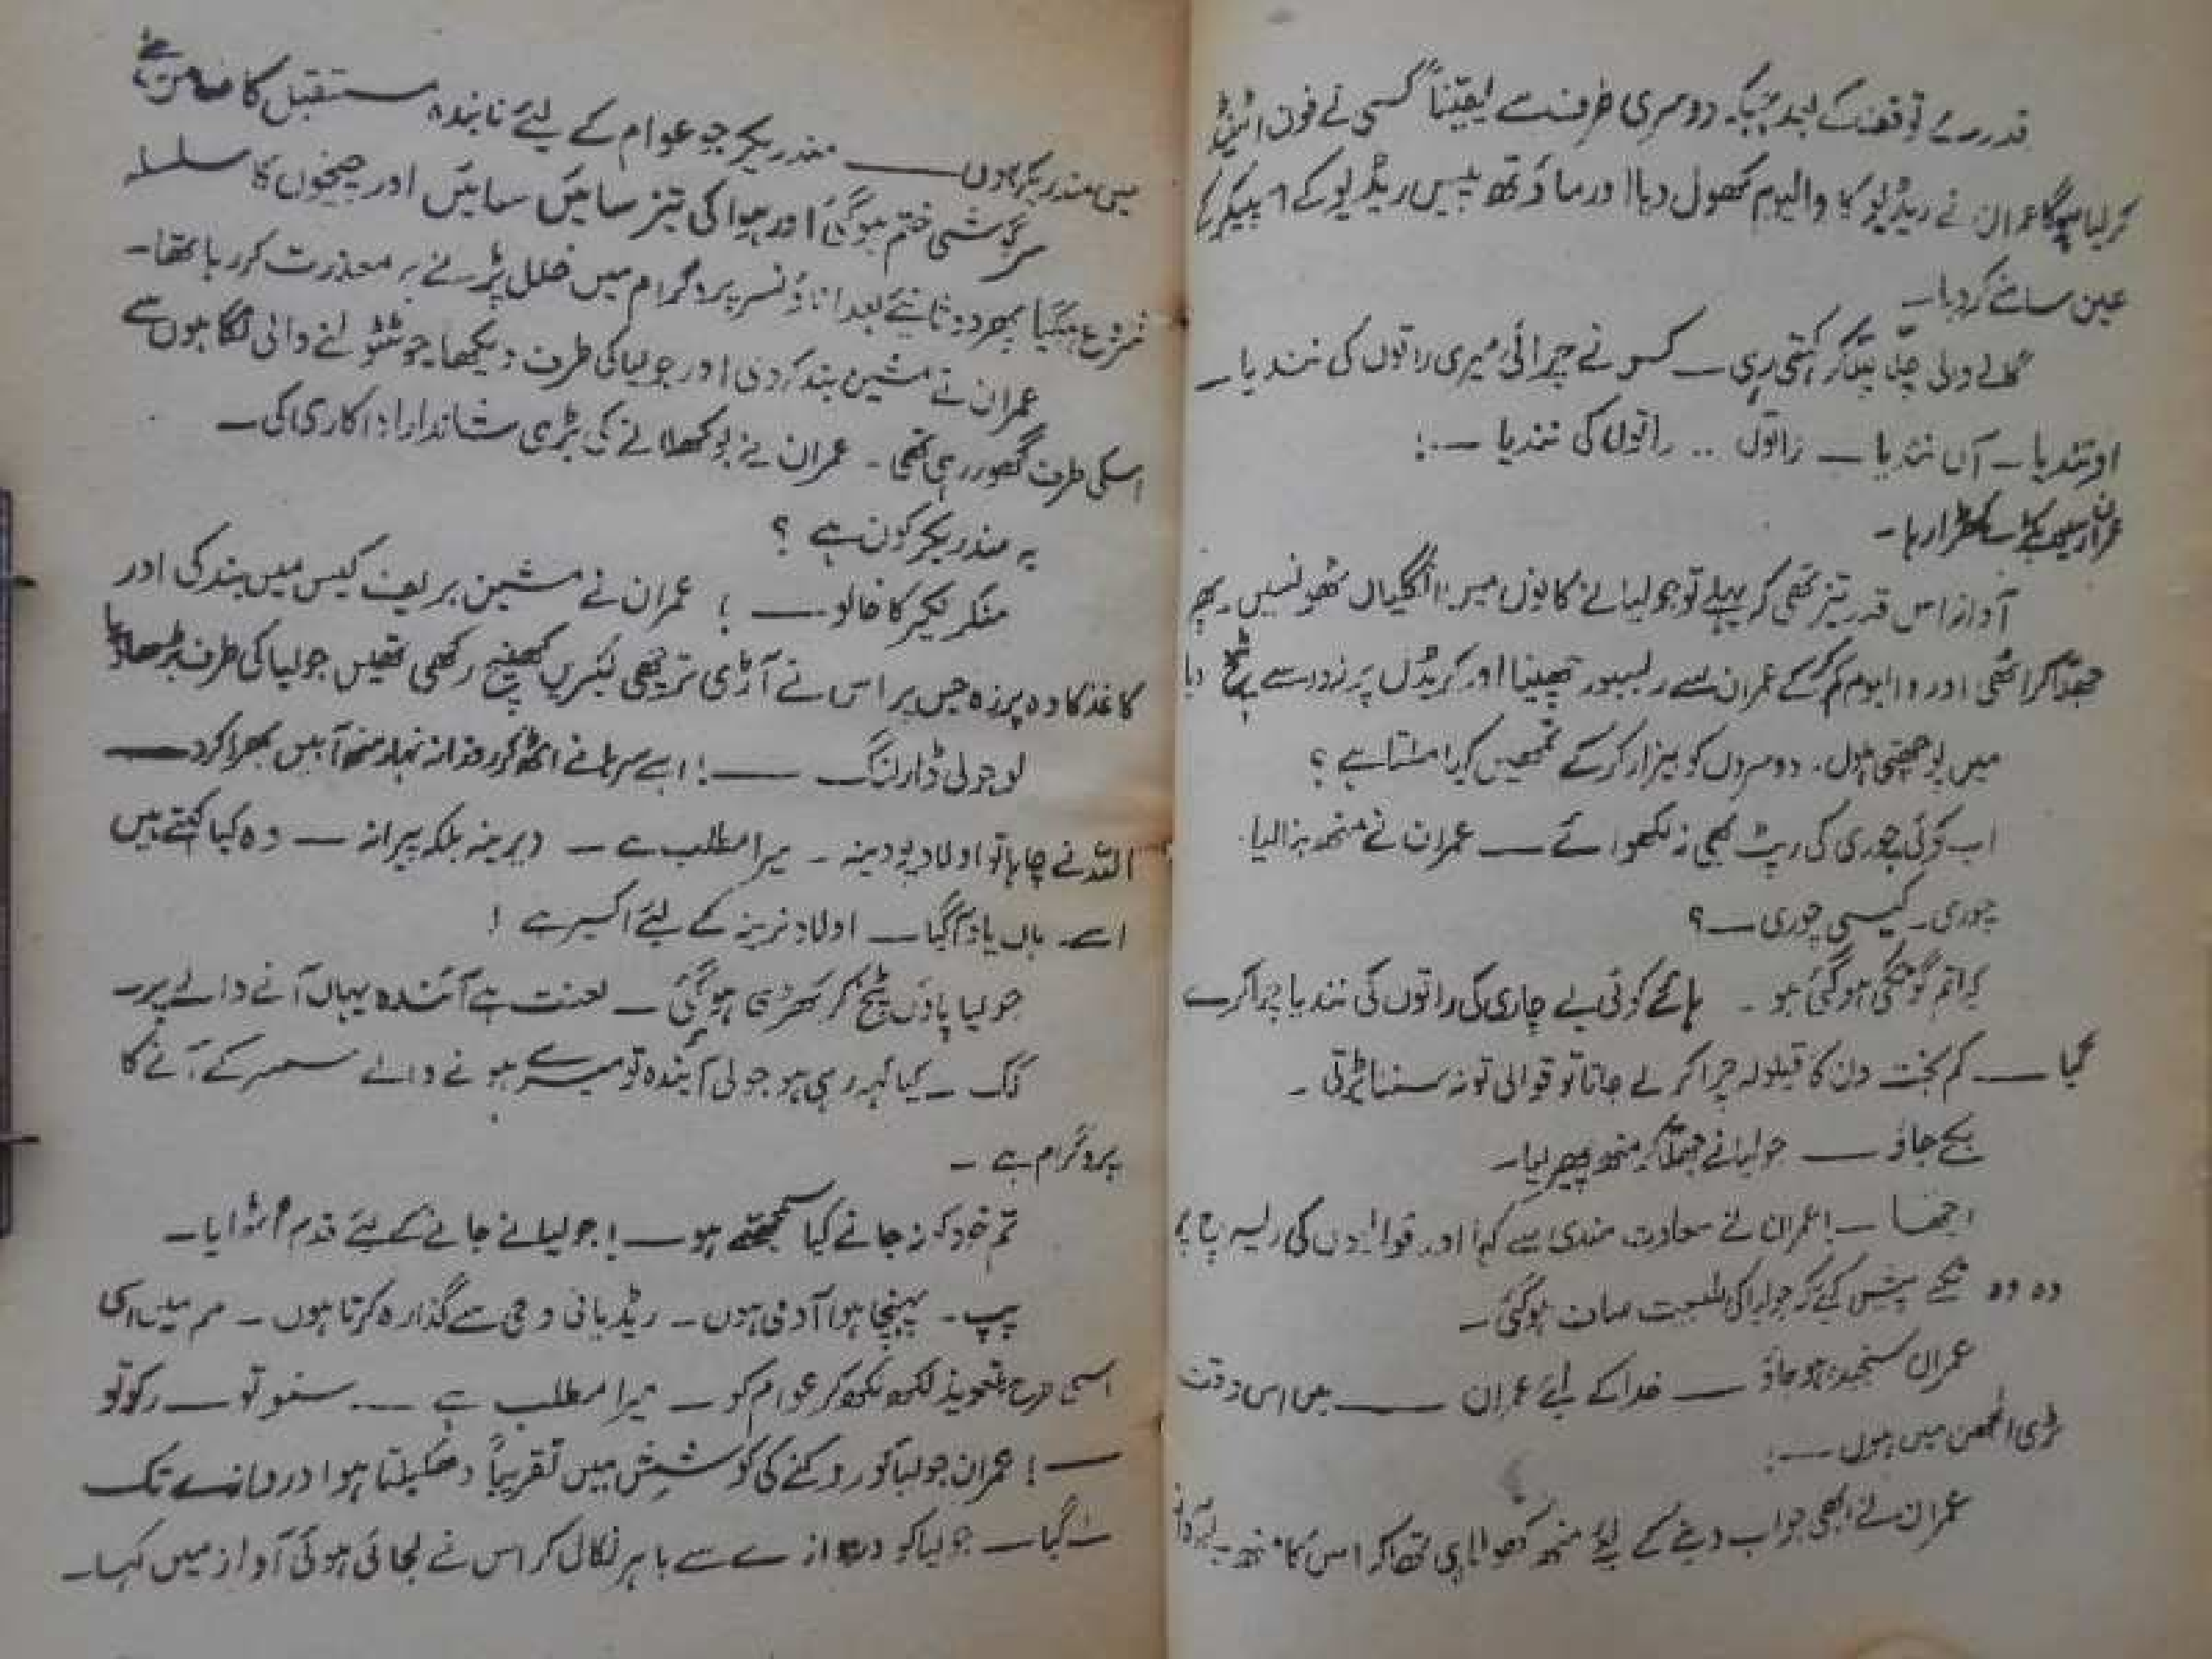 قدرے توقف کے بعد چپکے دوسری طرف سے یقیناً کسی نے فون اٹینڈ
کر لیا ہوگا عمران نے ریڈیو کا والیوم کھول دیا اور ماؤتھ پیس ریڈیو کے اسپیکر کے
عین سامنے کر دیا۔
گانے والی چلّا چلّا کر کہتی رہی — کس نے چرائی میری راتوں کی نندیا —
او نندیا — آں نندیا — راتوں .. راتوں کی نندیا — ۔!
عمران ریسیور پکڑے کھڑا رہا۔
آواز اس قدر تیز تھی کہ پہلے تو جولیا نے کانوں میں انگلیاں ٹھونسیں۔ پھر
جھلّا کر اٹھی اور والیوم کم کر کے عمران سے ریسیور چھینا اور کریڈل پر زور سے پٹخ دیا
میں پوچھتی ہوں۔ دوسروں کو بیزار کر کے تمہیں کیا ملتا ہے ؟
اب کوئی چوری کی رپٹ بھی نہ لکھوائے — عمران نے منھ بنا لیا۔
چوری۔ کیسی چوری — ؟
کیا تم گونگی ہو گئی ہو ۔ ہائے کوئی بے چاری کی راتوں کی نندیا چرا کر لے
گیا — کم بخت دن کا قیلولہ چرا کر لے جاتا تو قوالی تو نہ سننا پڑتی ۔
بج جاؤ — جولیا نے جھلّا کر منھ پھیر لیا۔
اچھا — ! عمران نے سعادت مندی سے کہا اور قوالوں کی
وہ وہ پیش کئے کہ جولیا کی طبیعت صاف ہو گئی ۔
عمران سنجیدہ ہو جاؤ — خدا کے لئے عمران — میں اس وقت
بڑی الجھن میں ہوں — !
عمران نے ابھی جواب دینے کے لئے منھ کھولا ہی تھا کہ اس کا منھ
میں مندریکر ہوں — مندریکر جو عوام کے لئے تابندہ مستقبل کا ضامن ہے
سرگوشی ختم ہو گئی اور ہوا کی تیز سائیں سائیں اور چیخوں کا سلسلہ
شروع ہو گیا پھر دو ثانیئے بعد اناؤنسر پروگرام میں خلل پڑنے پر معذرت کر رہا تھا۔
عمران نے مشین بند کر دی اور جولیا کی طرف دیکھا جو ٹٹولنے والی نگاہوں سے
اسکی طرف گھور رہی تھی ۔ عمران نے بوکھلانے کی بڑی شاندار اداکاری کی ۔
یہ مندریکر کون ہے ؟
منکر نکیر کا خالو — ! عمران نے مشین بریف کیس میں بند کی اور
کاغذ کا وہ پرزہ جس پر اس نے آڑی ترچھی لکیریں کھینچ رکھی تھیں جولیا کی طرف بڑھا دیا
لو جولی ڈارلنگ — ! اسے سرہانے اٹھ کر روزانہ نہار منھ آہیں بھرا کرو —
اللہ نے چاہا تو اولاد پودینہ ۔ میرا مطلب ہے — دیرینہ بلکہ پیرانہ — وہ کیا کہتے ہیں
اسے ۔ ہاں یاد آ گیا — اولاد نرینہ کے لئے اکسیر ہے !
جولیا پاؤں پٹخ کر کھڑی ہو گئی — لعنت ہے آئندہ یہاں آنے والے پر —
کک — کیا کہہ رہی ہو جولی آئندہ تو میرے ہونے والے سسر کے آنے کا
پروگرام ہے ۔
تم خود کو نہ جانے کیا سمجھتے ہو — ! جولیا نے جانے کے لئے قدم اٹھایا ۔
پپ ۔ پہنچا ہوا آدمی ہوں ۔ ریڈیائی وحی سے گذارہ کرتا ہوں ۔ مم میں اسی
اسی طرح تعویذ لکھ لکھ کر عوام کو — میرا مطلب ہے — سنو تو — رکو تو
— ! عمران جولیا کو روکنے کی کوشش میں تقریباً دھکیلتا ہوا دروازے تک
لے گیا — جولیا کو دروازے سے باہر نکال کر اس نے لجائی ہوئی آواز میں کہا ۔